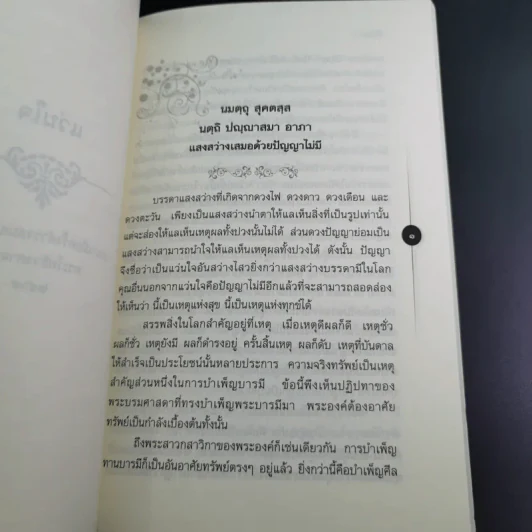 นมตฺถุ สุคตสฺส
นตฺถิ ปญฺญาสมา อาภา
แสงสว่างเสมอด้วยปัญญาไม่มี
บรรดาแสงสว่างที่เกิดจากดวงไฟ ดวงดาว ดวงเดือน และ
ดวงตะวัน เพียงเป็นแสงสว่างนำตาให้แลเห็นสิ่งที่เป็นรูปเท่านั้น
แต่จะส่องให้แลเห็นเหตุผลทั้งปวงนั้นไม่ได้ ส่วนดวงปัญญาย่อมเป็น
แสงสว่างสามารถนำใจให้แลเห็นเหตุผลทั้งปวงได้ ดังนั้น ปัญญา
จึงชื่อว่าเป็นแว่นใจอันสว่างไสวยิ่งกว่าแสงสว่างบรรดามีในโลก
คุณอื่นนอกจากแว่นใจคือปัญญาไม่มีอีกแล้วที่จะสามารถสอดส่อง
ให้เห็นว่า นี้เป็นเหตุแห่งสุข นี้เป็นเหตุแห่งทุกข์ได้
สรรพสิ่งในโลกสำคัญอยู่ที่เหตุ เมื่อเหตุดีผลก็ดี เหตุชั่ว
ผลก็ชั่ว เหตุยังมี ผลก็ดำรงอยู่ ครั้นสิ้นเหตุ ผลก็ดับ เหตุที่บันดาล
ให้สำเร็จเป็นประโยชน์นั้นหลายประการ ความจริงทรัพย์เป็นเหตุ
สำคัญส่วนหนึ่งในการบำเพ็ญบารมี ข้อนี้พึงเห็นปฏิปทาของ
พระบรมศาสดาที่ทรงบำเพ็ญพระบารมีมา พระองค์ต้องอาศัย
ทรัพย์เป็นกำลังเบื้องต้นทั้งนั้น
ถึงพระสาวกสาวิกาของพระองค์ก็เช่นเดียวกัน การบำเพ็ญ
ทานบารมีก็เป็นอันอาศัยทรัพย์ตรงๆ อยู่แล้ว ยิ่งกว่านี้คือบำเพ็ญศีล